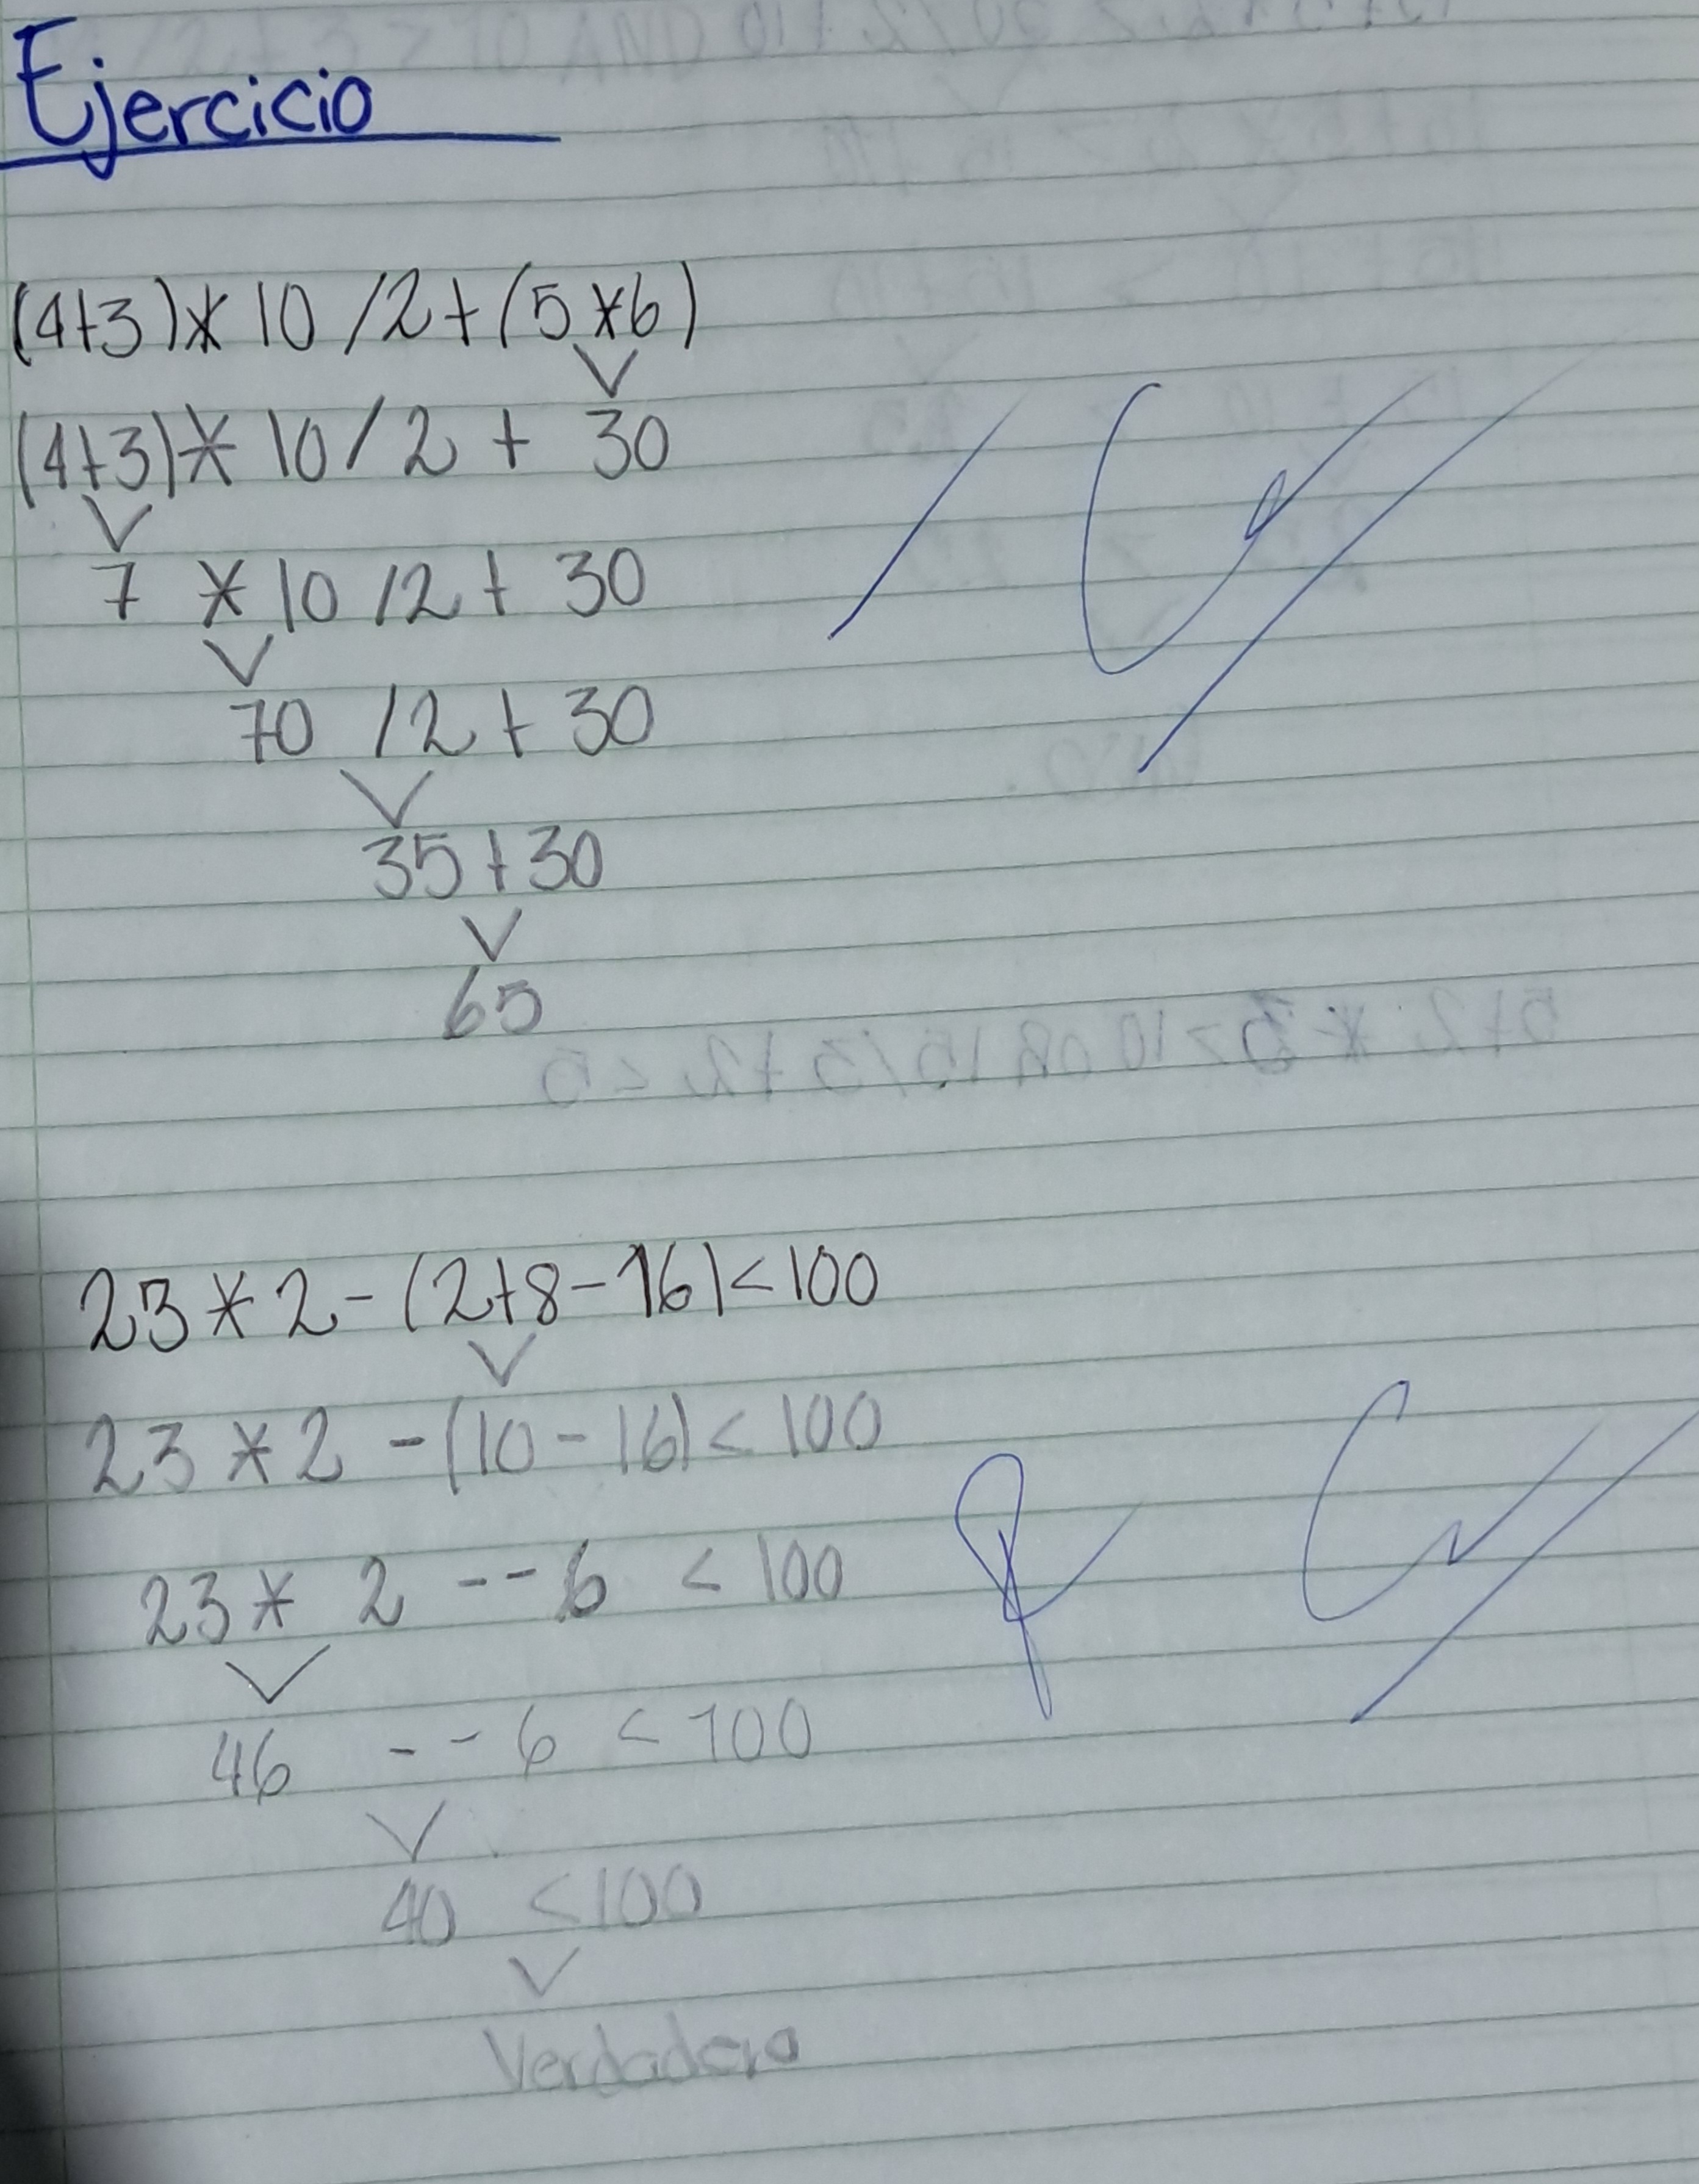 Ejercicio
(4+3)*10/2+(5*6)
(4+3)*10/2+30
7*10/2+30
70/2+30
35+30
65
23*2-(2+8-16)<100
23*2-(10-16)<100
23*2--6<100
46--6<100
40<100
Verdadero